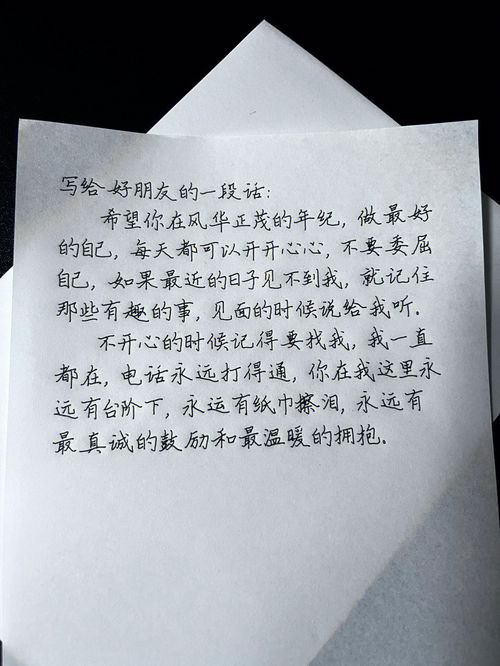 写给好朋友的一段话:
希望你在风华正茂的年纪,做最好
的自己,每天都可以开开心心,不要委屈
自己,如果最近的日子见不到我,就记住
那些有趣的事,见面的时候说给我听.
不开心的时候记得要找我,我一直
都在,电话永远打得通,你在我这里永
远有台阶下,永远有纸巾擦泪,永远有
最真诚的鼓励和最温暖的拥抱.